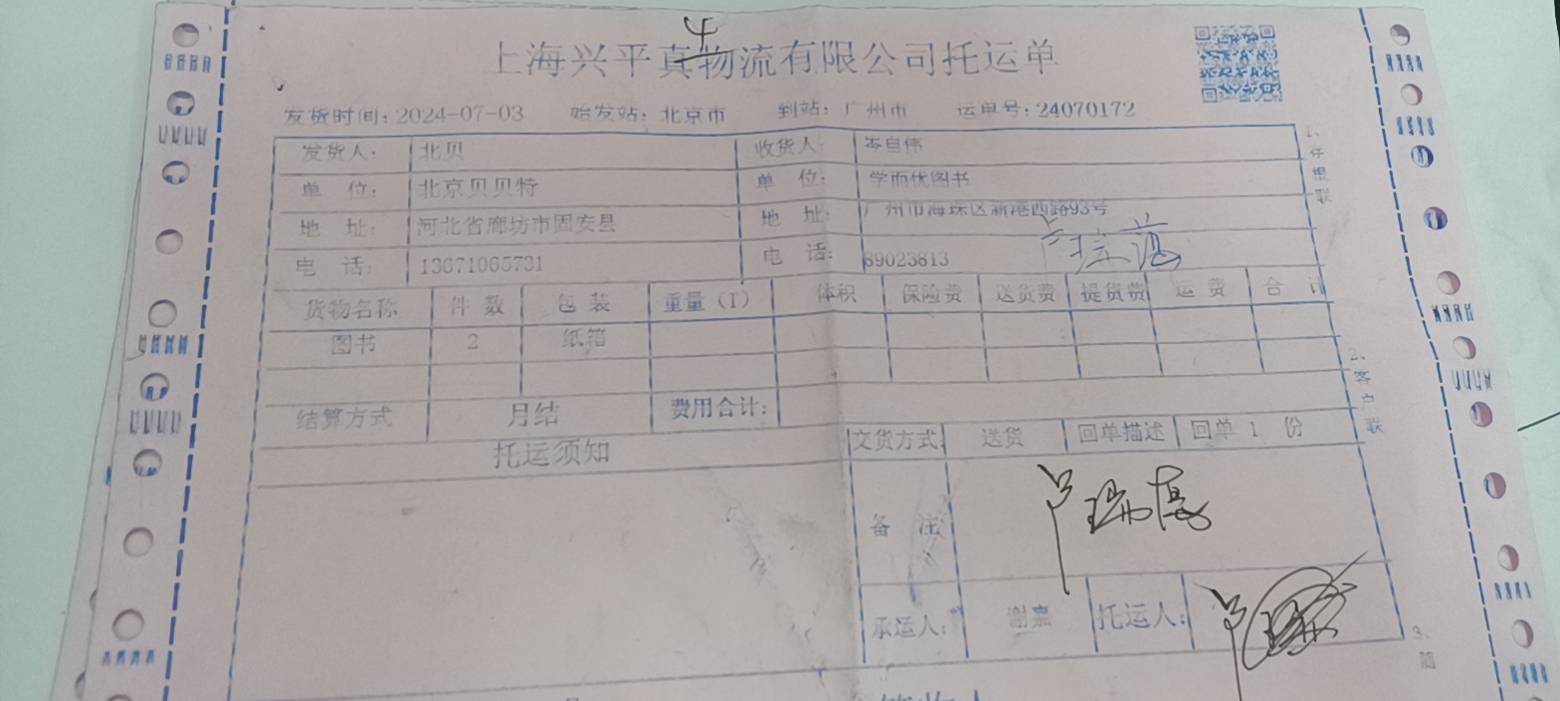 上海兴平真物流有限公司托运单
发货时间：2024-07-03 始发站：北京市 到站：广州市 运单号：24070172
发货人： 北贝 收货人： 岑自伟
单 位： 北京贝贝特 单 位： 学而优图书
地 址： 河北省廊坊市固安县 地 址： 广州市海珠区新港西路93号
电 话： 13671065731 电 话： 89023813
货物名称 件 数 包 装 重量（T） 体积 保险费 送货费 提货费 运 费 合 计
图书 2 纸箱
结算方式 月结 费用合计：
托运须知 交货方式： 送货 回单描述 回单 1 份
备 注
承运人： 谢嘉 托运人：
1、存根联
2、客户联
3、